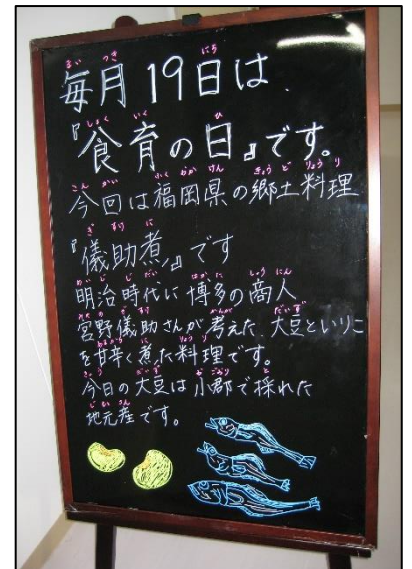 毎月19日は
『食育の日』です。
今回は福岡県の郷土料理
『儀助煮』です
明治時代に博多の商人
宮野儀助さんが考えた大豆といりこ
を甘辛く煮た料理です。
今日の大豆は小郡で採れた
地元産です。